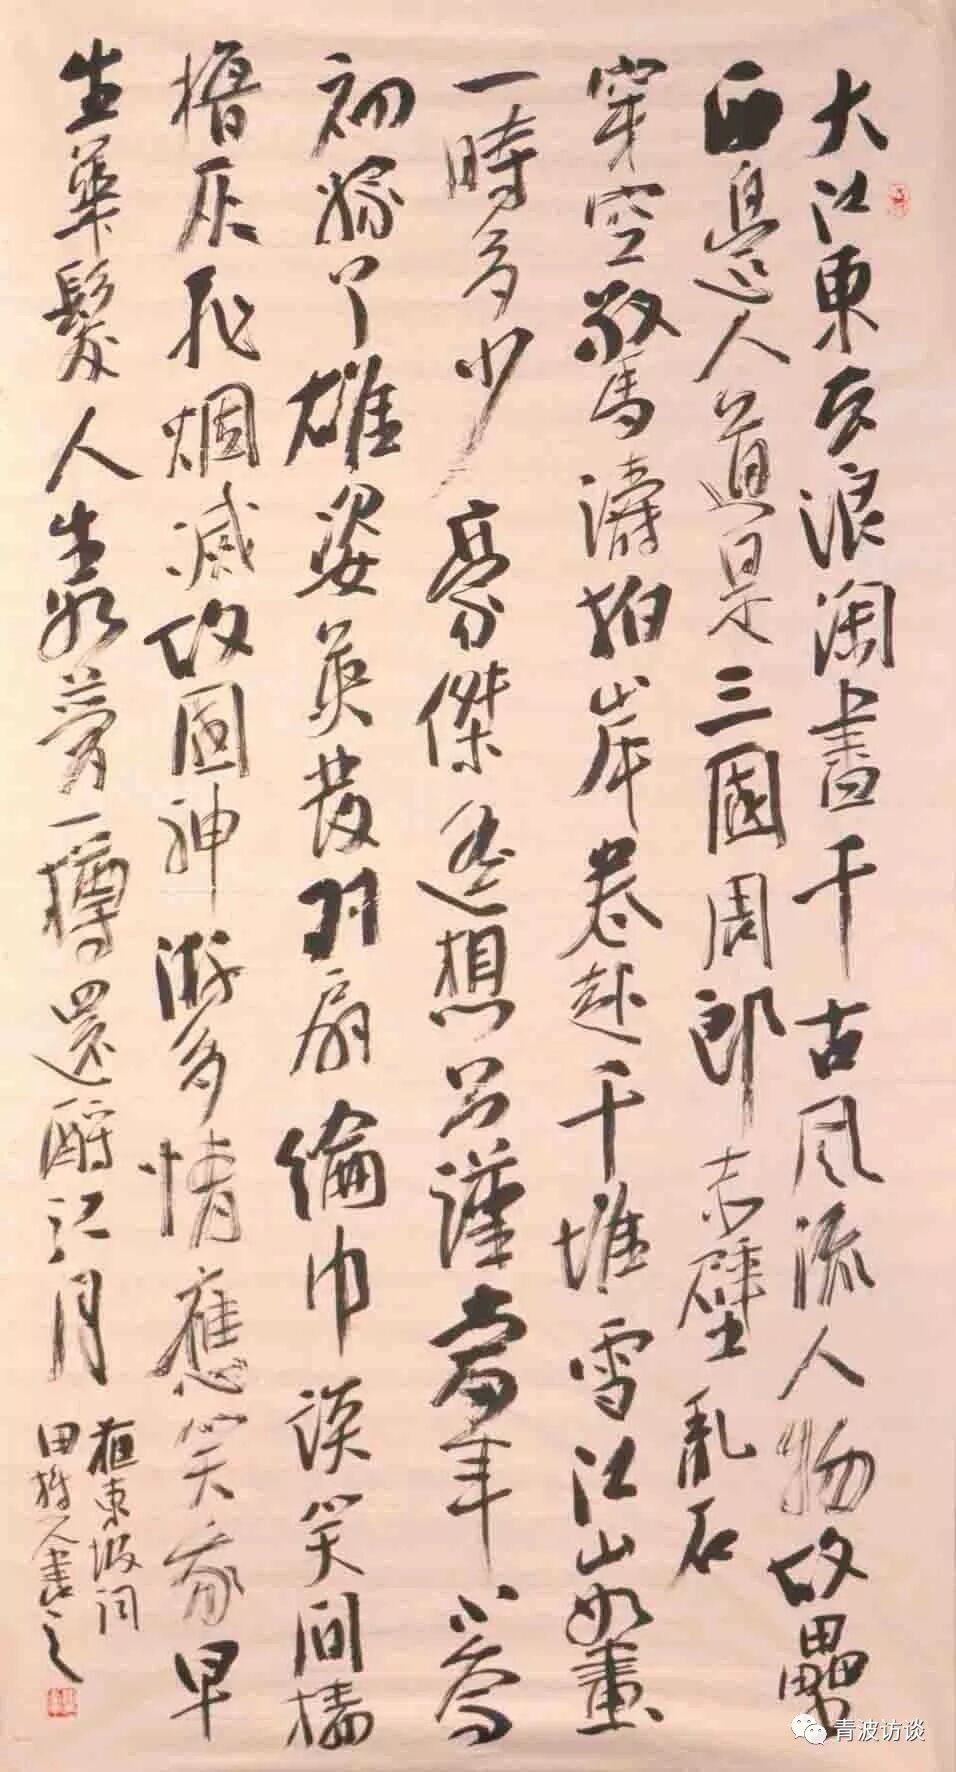 大江東去浪淘盡千古風流人物故壘
西邊人道是三國周郎赤壁亂石
穿空驚濤拍岸卷起千堆雪江山如畫
一時多少豪傑遙想公瑾當年小喬
初嫁了雄姿英發羽扇綸巾談笑間檣
櫓灰飛烟滅故國神游多情應笑我早
生華髮人生如夢一樽還酹江月
蘇東坡词
田書之
青波访谈